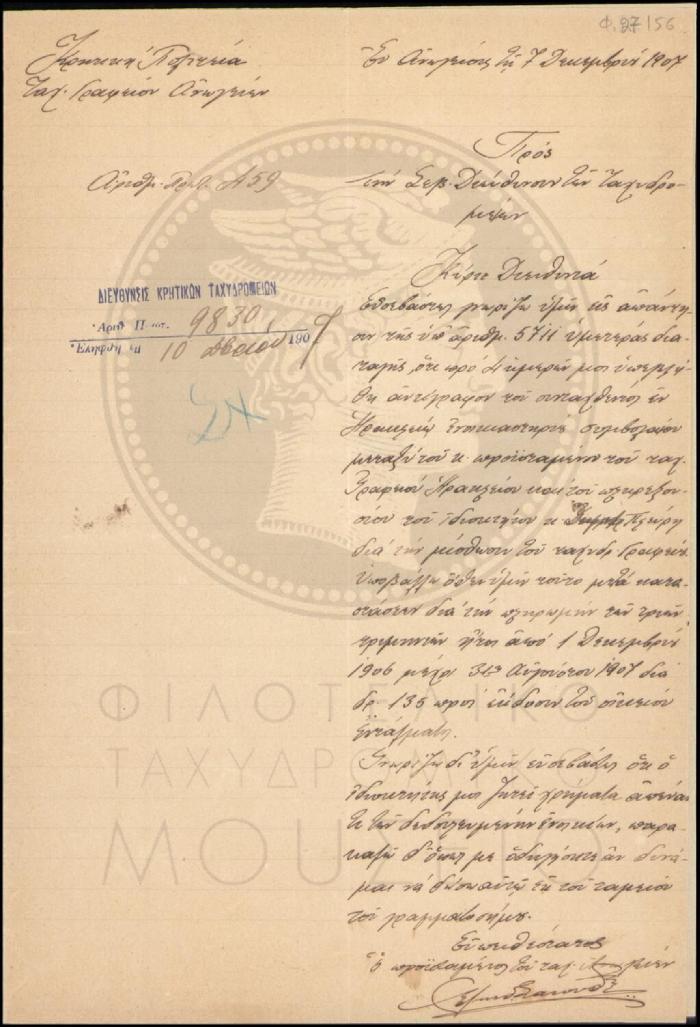 Φ. 27/56
Κρητική Πολιτεία
Ταχ. Γραφείον Ανωγείων
Εν Ανωγείοις τη 7 Δεκεμβρίου 1907
Αριθμ. Πρωτ. Α 59
Προς
την Σεβ. Διεύθυνσιν των Ταχυδρο-
μείων
ΔΙΕΥΘΥΝΣΙΣ ΚΡΗΤΙΚΩΝ ΤΑΧΥΔΡΟΜΕΙΩΝ
Αριθ. Πρωτ. 9830
Ελήφθη τη 10 1907
Κύριε Διευθυντά
Ευσεβάστως γνωρίζω υμίν εις απάντη-
σιν της υπ' αριθμ. 5711 υμετέρας δια-
ταγής, ότι προ ημερών μοι
αντίγραφον του συνταχθέντος εν
Ηρακλείω ενοικιαστηρίου συμβολαίου
μεταξύ του κ. προϊσταμένου του ταχ.
Γραφείου Ηρακλείου και του πληρεξου-
σίου του ιδιοκτήτου κ.
διά την μίσθωσιν του ταχυδρ. Γραφείου.
Υποβάλλω όθεν υμίν τούτο μετά κατα-
στάσεων διά την πληρωμήν των τριών
τριμηνιών ήτοι από 1 Δεκεμβρίου
1906 μέχρι 31ης Αυγούστου 1907 διά
δρ. 135 προς έκδοσιν του οικείου
εντάλματος.
Γνωρίζω δε υμίν ευσεβάστως ότι ο
ιδιοκτήτης μοι ζητεί χρήματα απέναν-
τι των δεδουλευμένων ενοικίων, παρα-
καλώ δ' όπως με οδηγήσητε αν δύνα-
μαι να δώσω αυτώ εκ του ταμείου
του γραμματοσήμου.
Ευπειθέστατος
Ο προϊστάμενος του ταχ. Ανωγείων
ΦΙΛΟΤΕΛΙΚΟ
ΤΑΧΥΔΡΟΜΙΚΟ
ΜΟΥΣΕΙΟ